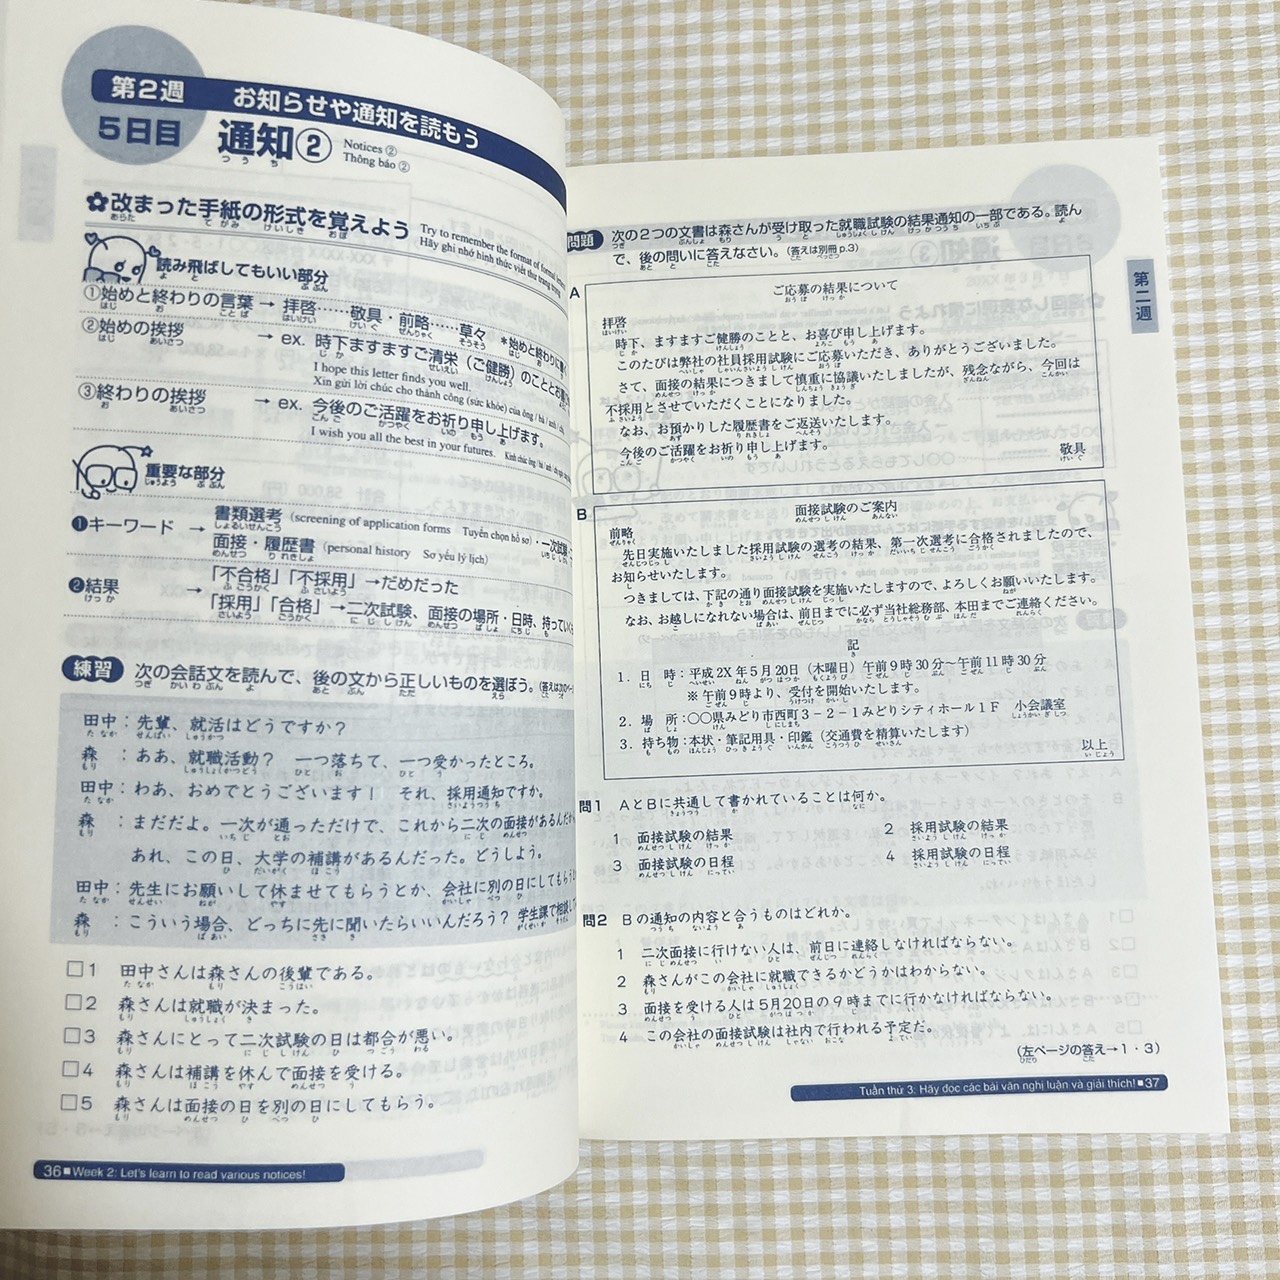 第2週 お知らせや通知を読もう
5日目 通知②
Notices ②
Thông báo ②
改まった手紙の形式を覚えよう
Try to remember the format of formal
Hãy ghi nhớ hình thức viết thư trang trọng
読み飛ばしてもいい部分
①始めと終わりの言葉 → 拝啓……敬具・前略……草々 *始めと終わりに
②始めの挨拶 → ex. 時下ますますご清栄(ご健勝)のこととお
I hope this letter finds you well.
Xin gửi lời chúc cho thành công (sức khỏe) của ông / bà / anh
③終わりの挨拶 → ex. 今後のご活躍をお祈り申し上げます。
I wish you all the best in your futures.
重要な部分
❶キーワード → 書類選考 (screening of application forms Tuyển chọn hồ sơ)・一次試験
面接・履歴書 (personal history Sơ yếu lý lịch)
❷結果 → 「不合格」「不採用」→だめだった
「採用」「合格」→二次試験、面接の場所・日時、持っていく
練習 次の会話文を読んで、後の文から正しいものを選ぼう。(答えは次のペー
田中:先輩、就活はどうですか?
森 :ああ、就職活動? 一つ落ちて、一つ受かったところ。
田中:わあ、おめでとうございます! それ、採用通知ですか。
森 :まだだよ。一次が通っただけで、これから二次の面接があるんだか
あれ、この日、大学の補講があるんだった。どうしよう。
田中:先生にお願いして休ませてもらうとか、会社に別の日にしてもらう
森 :こういう場合、どっちに先に聞いたらいいんだろう? 学生課で相談して
□1 田中さんは森さんの後輩である。
□2 森さんは就職が決まった。
□3 森さんにとって二次試験の日は都合が悪い。
□4 森さんは補講を休んで面接を受ける。
□5 森さんは面接の日を別の日にしてもらう。
36 ■ Week 2: Let's learn to read various notices!
第二週
問題 次の2つの文書は森さんが受け取った就職試験の結果通知の一部である。読ん
で、後の問いに答えなさい。(答えは別冊p.3)
A
ご応募の結果について
拝啓
時下、ますますご健勝のことと、お喜び申し上げます。
このたびは弊社の社員採用試験にご応募いただき、ありがとうございました。
さて、面接の結果につきまして慎重に協議いたしましたが、残念ながら、今回は
不採用とさせていただくことになりました。
なお、お預かりした履歴書をご返送いたします。
今後のご活躍をお祈り申し上げます。
敬具
B
面接試験のご案内
前略
先日実施いたしました採用試験の選考の結果、第一次選考に合格されましたので、
お知らせいたします。
つきましては、下記の通り面接試験を実施いたしますので、よろしくお願いいたします。
なお、お越しになれない場合は、前日までに必ず当社総務部、本田までご連絡ください。
記
1. 日 時:平成2X年5月20日(木曜日)午前9時30分〜午前11時30分
※午前9時より、受付を開始いたします。
2. 場 所:〇〇県みどり市西町3-2-1みどりシティホール1F 小会議室
3. 持ち物:本状・筆記用具・印鑑(交通費を精算いたします)
以上
問1 AとBに共通して書かれていることは何か。
1 面接試験の結果 2 採用試験の結果
3 面接試験の日程 4 採用試験の日程
問2 Bの通知の内容と合うものはどれか。
1 二次面接に行けない人は、前日に連絡しなければならない。
2 森さんがこの会社に就職できるかどうかはわからない。
3 面接を受ける人は5月20日の9時までに行かなければならない。
4 この会社の面接試験は社内で行われる予定だ。
(左ページの答え→1・3)
Tuần thứ 3. Hãy đọc các bài văn nghị luận và giải thích! ■ 37